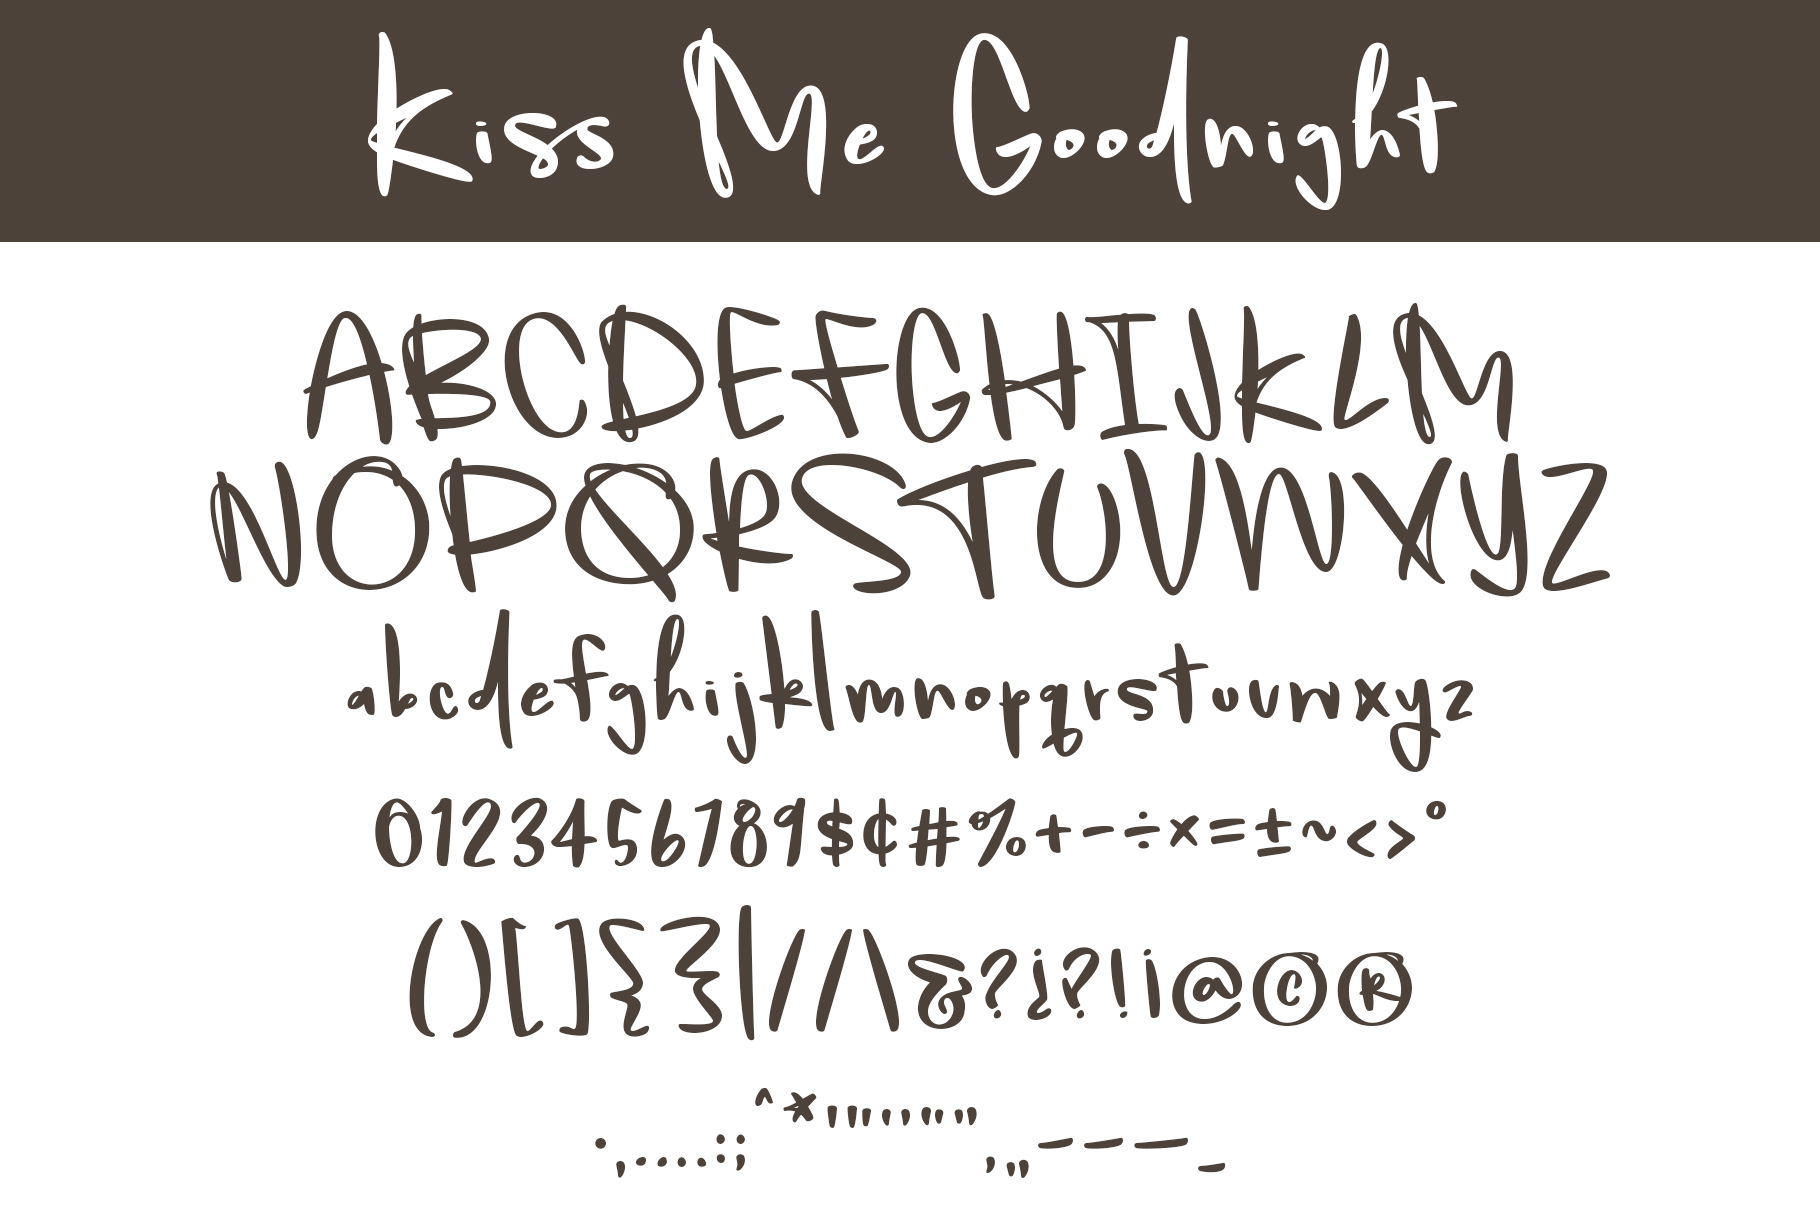 Kiss Me Goodnight
ABCDEFGHIJKLM
NOPQRSTUVWXYZ
abcdefghijklmnopqrstuvwxyz
0123456789$¢#%+−÷×=±~<>°
()[]{}|/⁄\&?¿?!¡@©®
·,.…:;^*'"‘’“”‚„-–—_